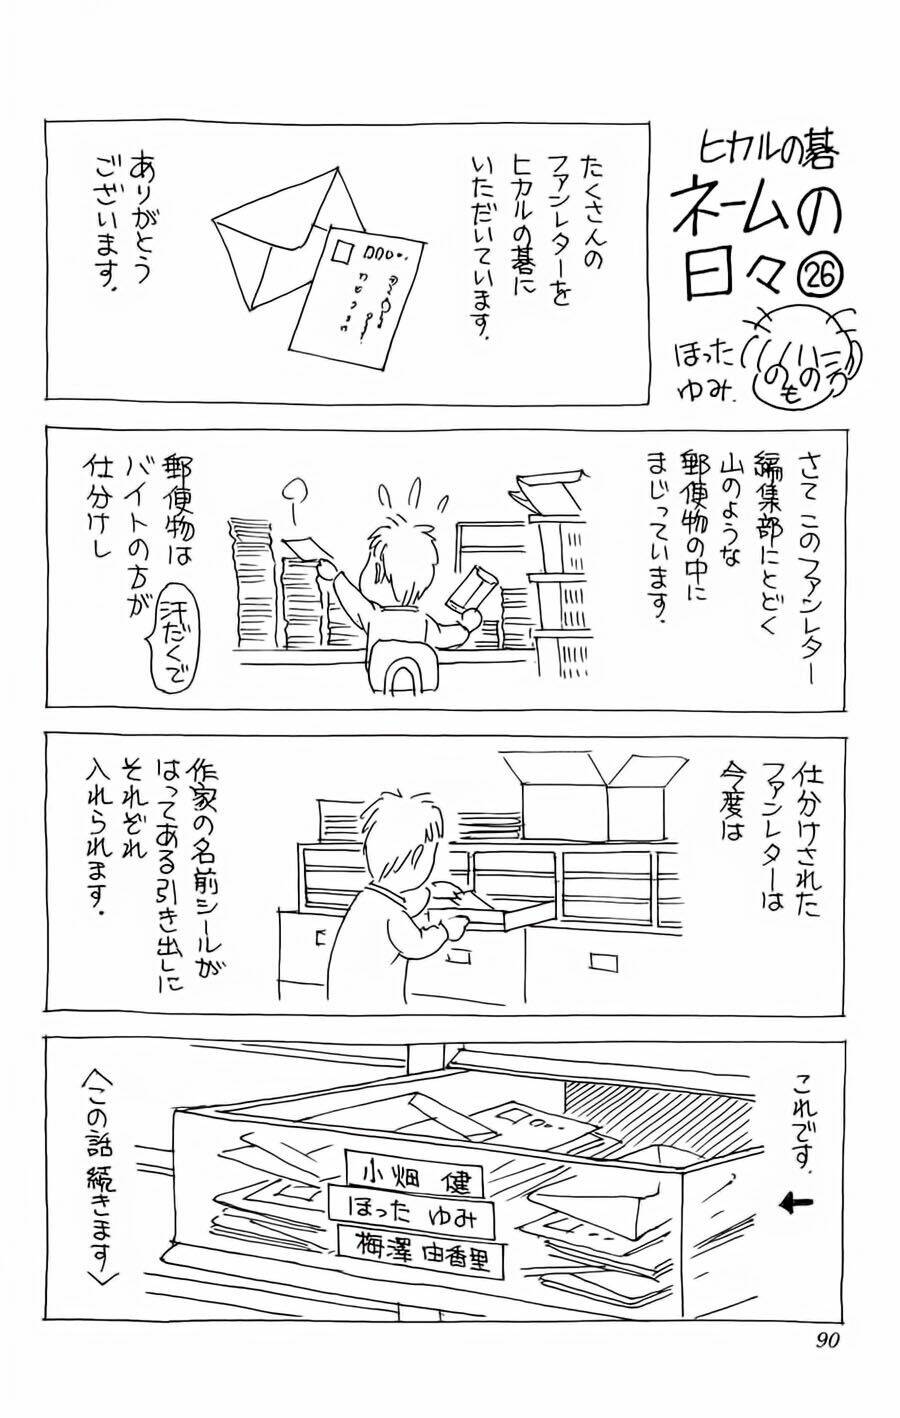 ヒカルの碁
ネームの
日々㉖
ほった
ゆみ.
たくさんの
ファンレターを
ヒカルの碁に
いただいています.
ありがとう
ございます.
さてこのファンレター
編集部にとどく
山のような
郵便物の中に
まじっています.
郵便物は
バイトの方が
汗だくで
仕分けし
仕分けされた
ファンレターは
今度は
作家の名前シールが
はってある引き出しに
それぞれ
入れられます.
これです.
←
小畑 健
ほった ゆみ
梅澤 由香里
〈この話 続きます〉
90